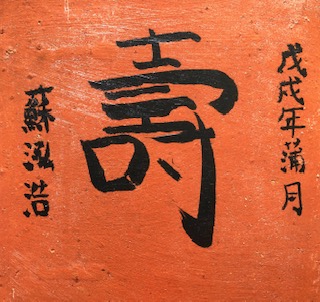 戊戌年蒲月
壽
蘇泓浩